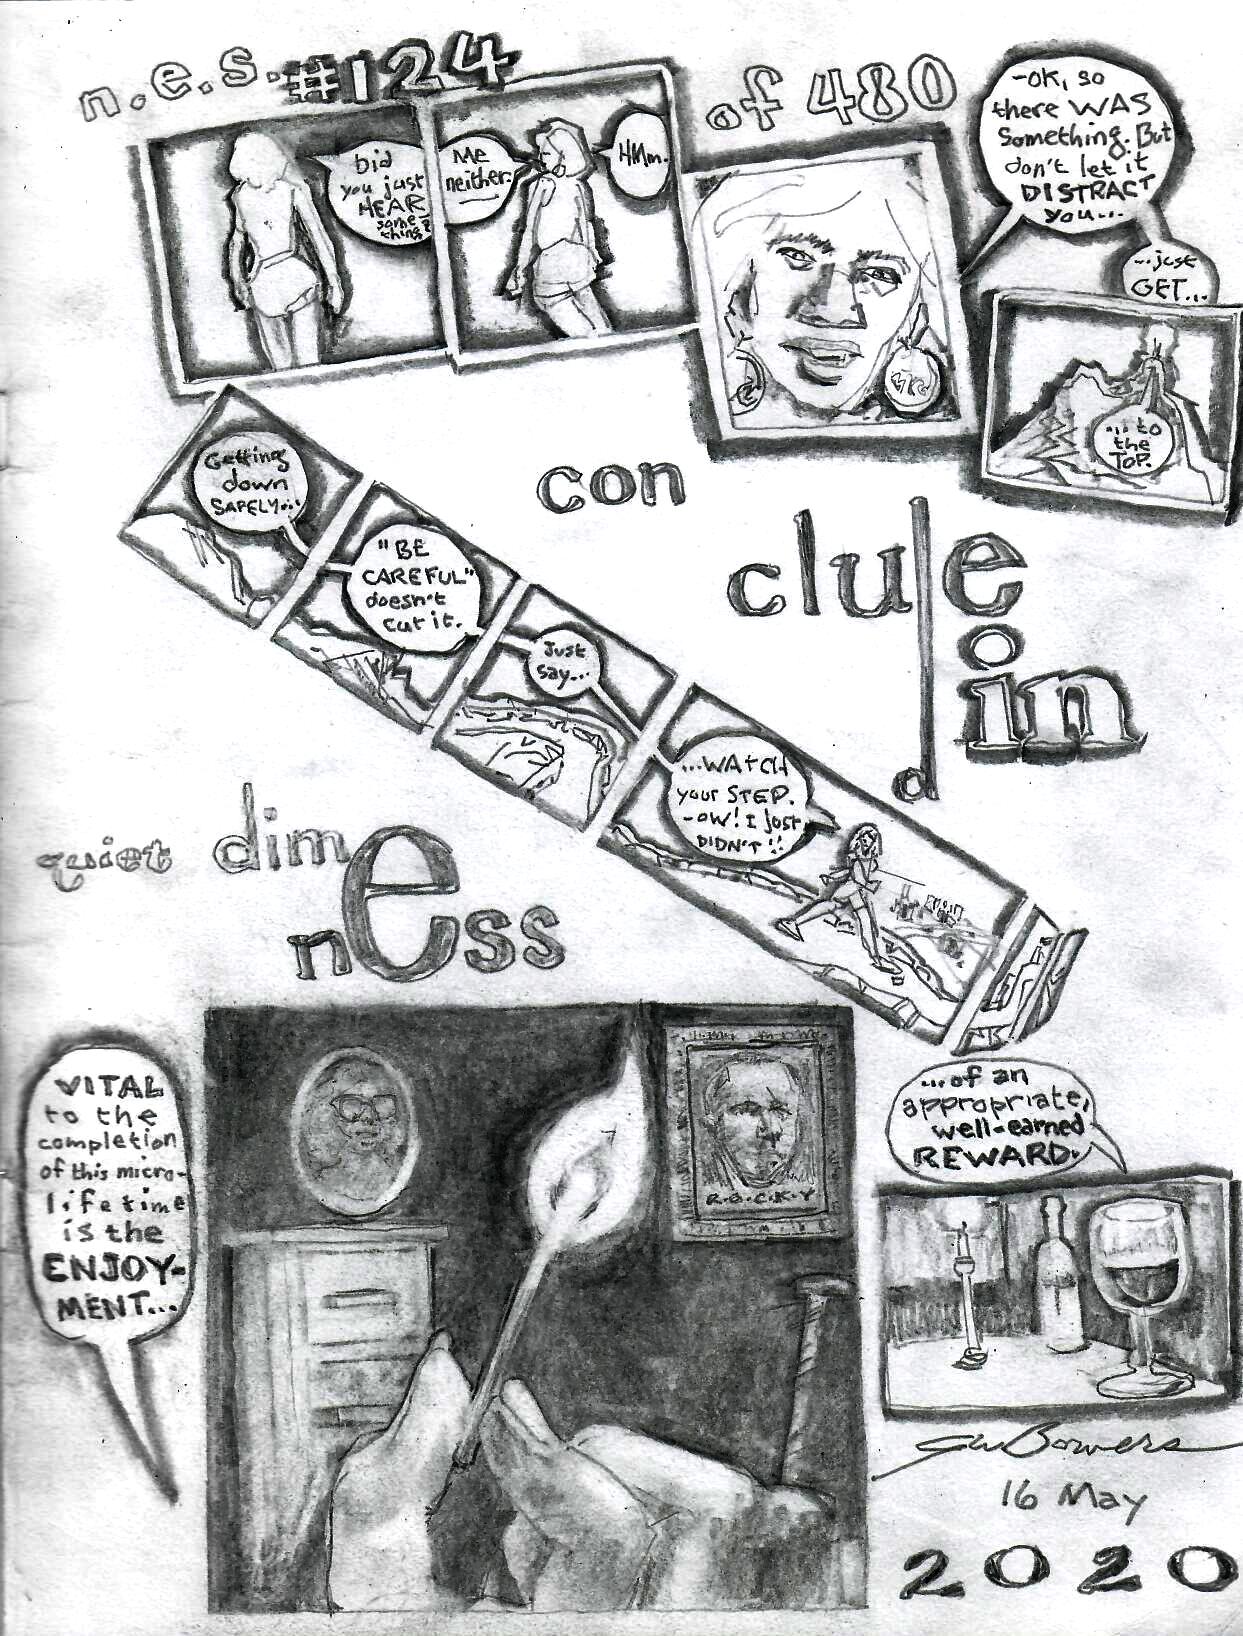 n.e.s. #124
of 480
Did
you just
HEAR
some-
thing?
Me
neither.
HMm.
-OK, so
there WAS
Something. But
don't let it
DISTRACT
you...
...just
GET...
...to
the
TOP.
Getting
down
SAFELY...
"BE
CAREFUL"
doesn't
cut it.
Just
say...
...WATCH
your STEP.
-OW! I just
DIDN'T!!
con
clude
in
quiet dim
ness
VITAL
to the
completion
of this micro-
lifetime
is the
ENJOY-
MENT...
R.O.C.K.Y
...of an
appropriate,
well-earned
REWARD.
GWBowers
16 May
2020